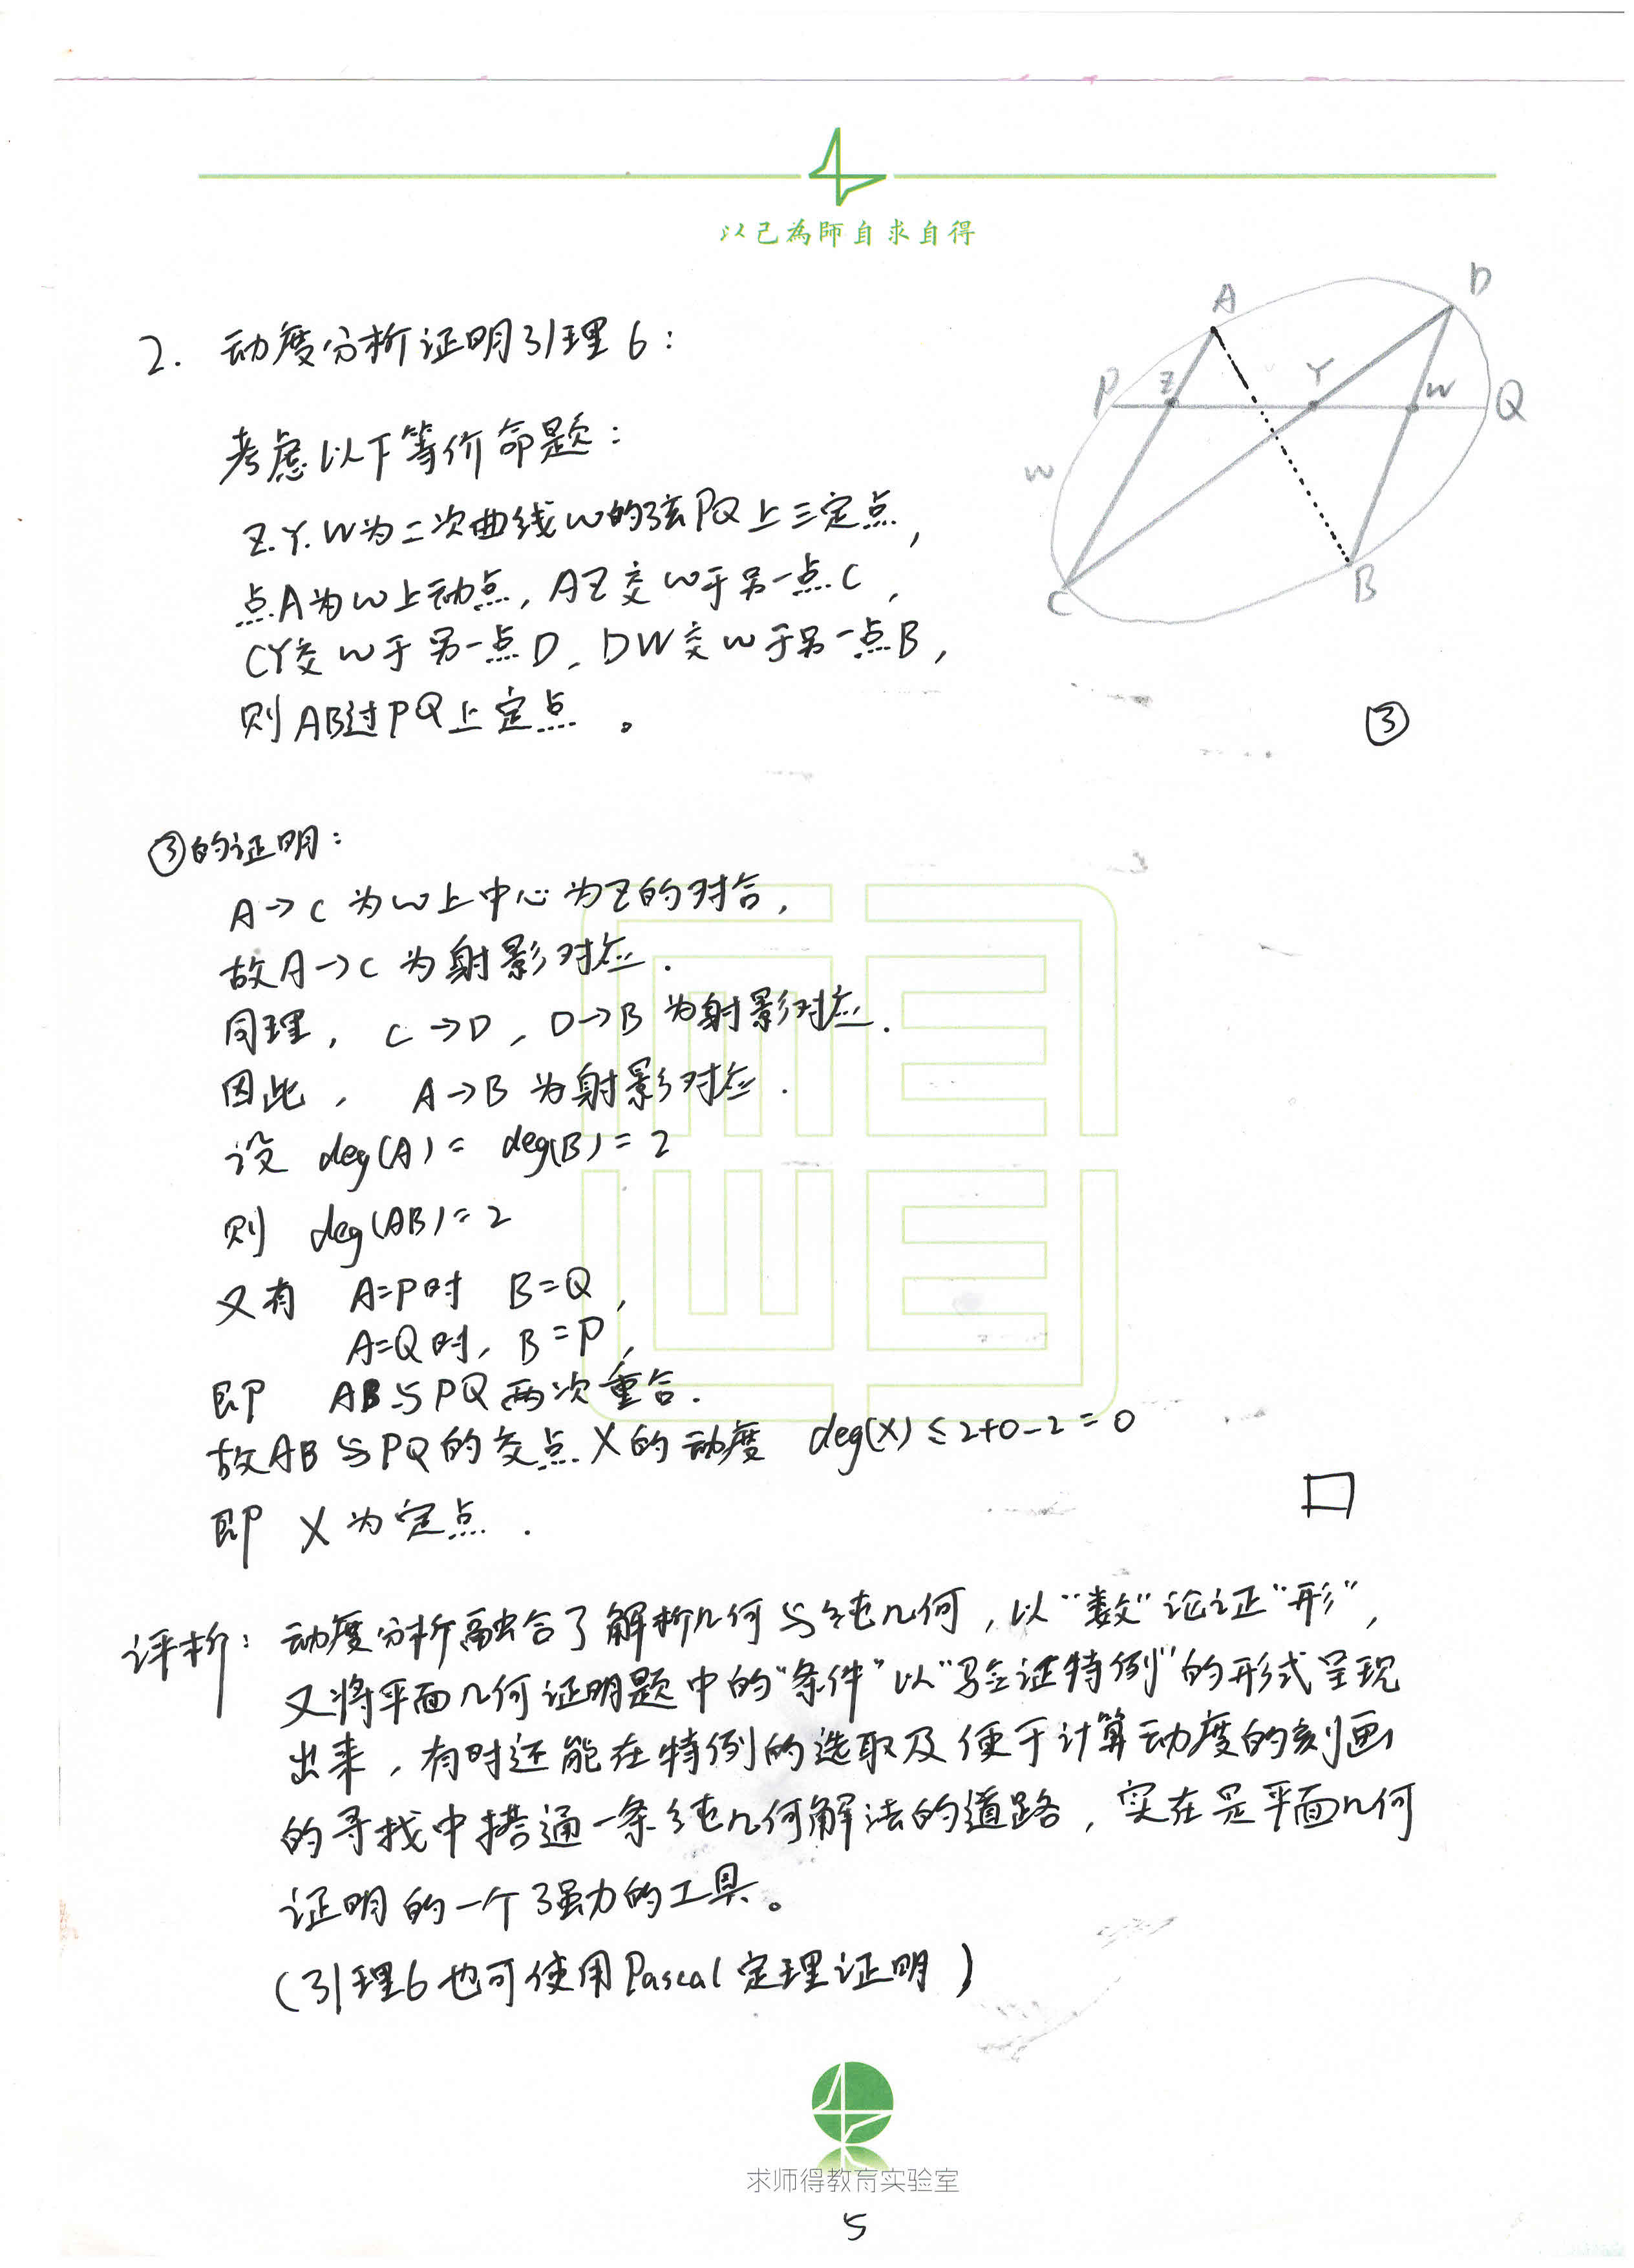 以己為師自求自得
2. 动度分析证明引理6:
考虑以下等价命题:
Z.Y.W为二次曲线ω的弦PQ上三定点,
点A为ω上动点, AZ交ω于另一点C,
CY交ω于另一点D, DW交ω于另一点B,
则AB过PQ上定点。
A
D
P
Z
Y
W
Q
ω
C
B
③
③的证明:
A→C 为ω上中心为Z的对合,
故A→C 为射影对应.
同理, C→D, D→B 为射影对应.
因此, A→B 为射影对应.
设 deg(A) = deg(B) = 2
则 deg(AB) = 2
又有 A=P时 B=Q,
A=Q时, B=P,
即 AB与PQ两次重合.
故AB与PQ的交点X的动度 deg(X) ≤ 2+0-2 = 0
即 X为定点.
□
评析: 动度分析融合了解析几何与纯几何, 以“数”论证“形”,
又将平面几何证明题中的“条件”以“验证特例”的形式呈现
出来, 有时还能在特例的选取及便于计算动度的刻画
的寻找中搭通一条纯几何解法的道路, 实在是平面几何
证明的一个强力的工具。
(引理6也可使用Pascal定理证明)
求师得教育实验室
5